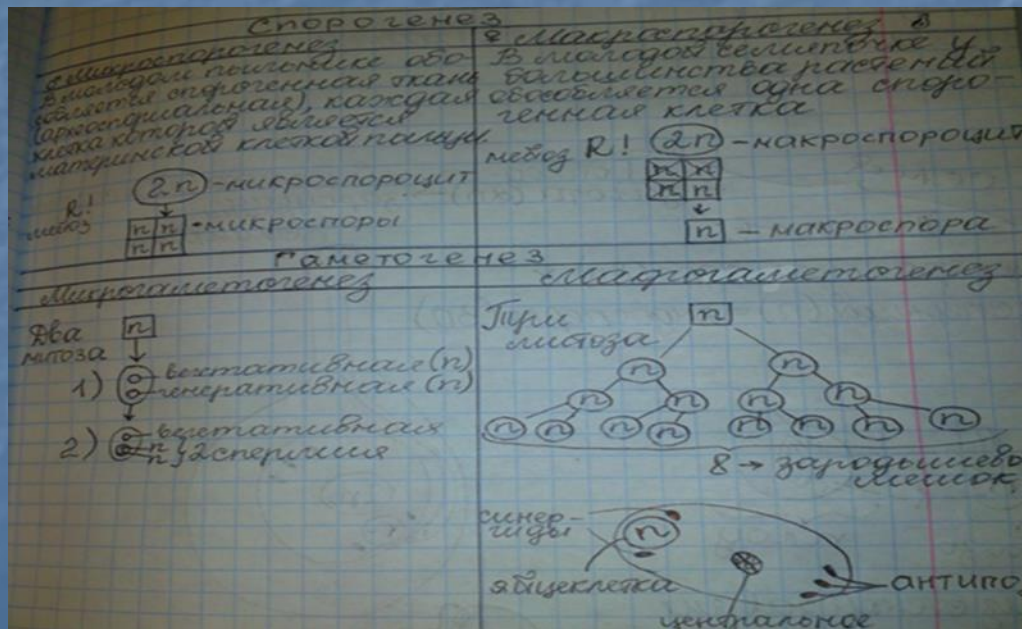 Спорогенез
♂ Микроспорогенез
В молодом пыльнике обо-
собляется спорогенная ткань
(археспориальная), каждая
клетка которой является
материнской клеткой пыльцы.
R!
мейоз
2n - микроспороцит
n n - микроспоры
n n
♀ Макроспорогенез
В молодой семяпочке у
большинства растений
обособляется одна споро-
генная клетка
мейоз R! 2n - макроспороцит
n n
n n
n - макроспора
Гаметогенез
Микрогаметогенез
Два
митоза
n
1) вегетативная (n)
генеративная (n)
2) вегетативная
n
n } 2 спермия
Макрогаметогенез
Три
митоза
n
n n
n n n n
n n n n n n n n
8 → зародышево
мешок
синер-
гиды
n
яйцеклетка
антипо
центральное